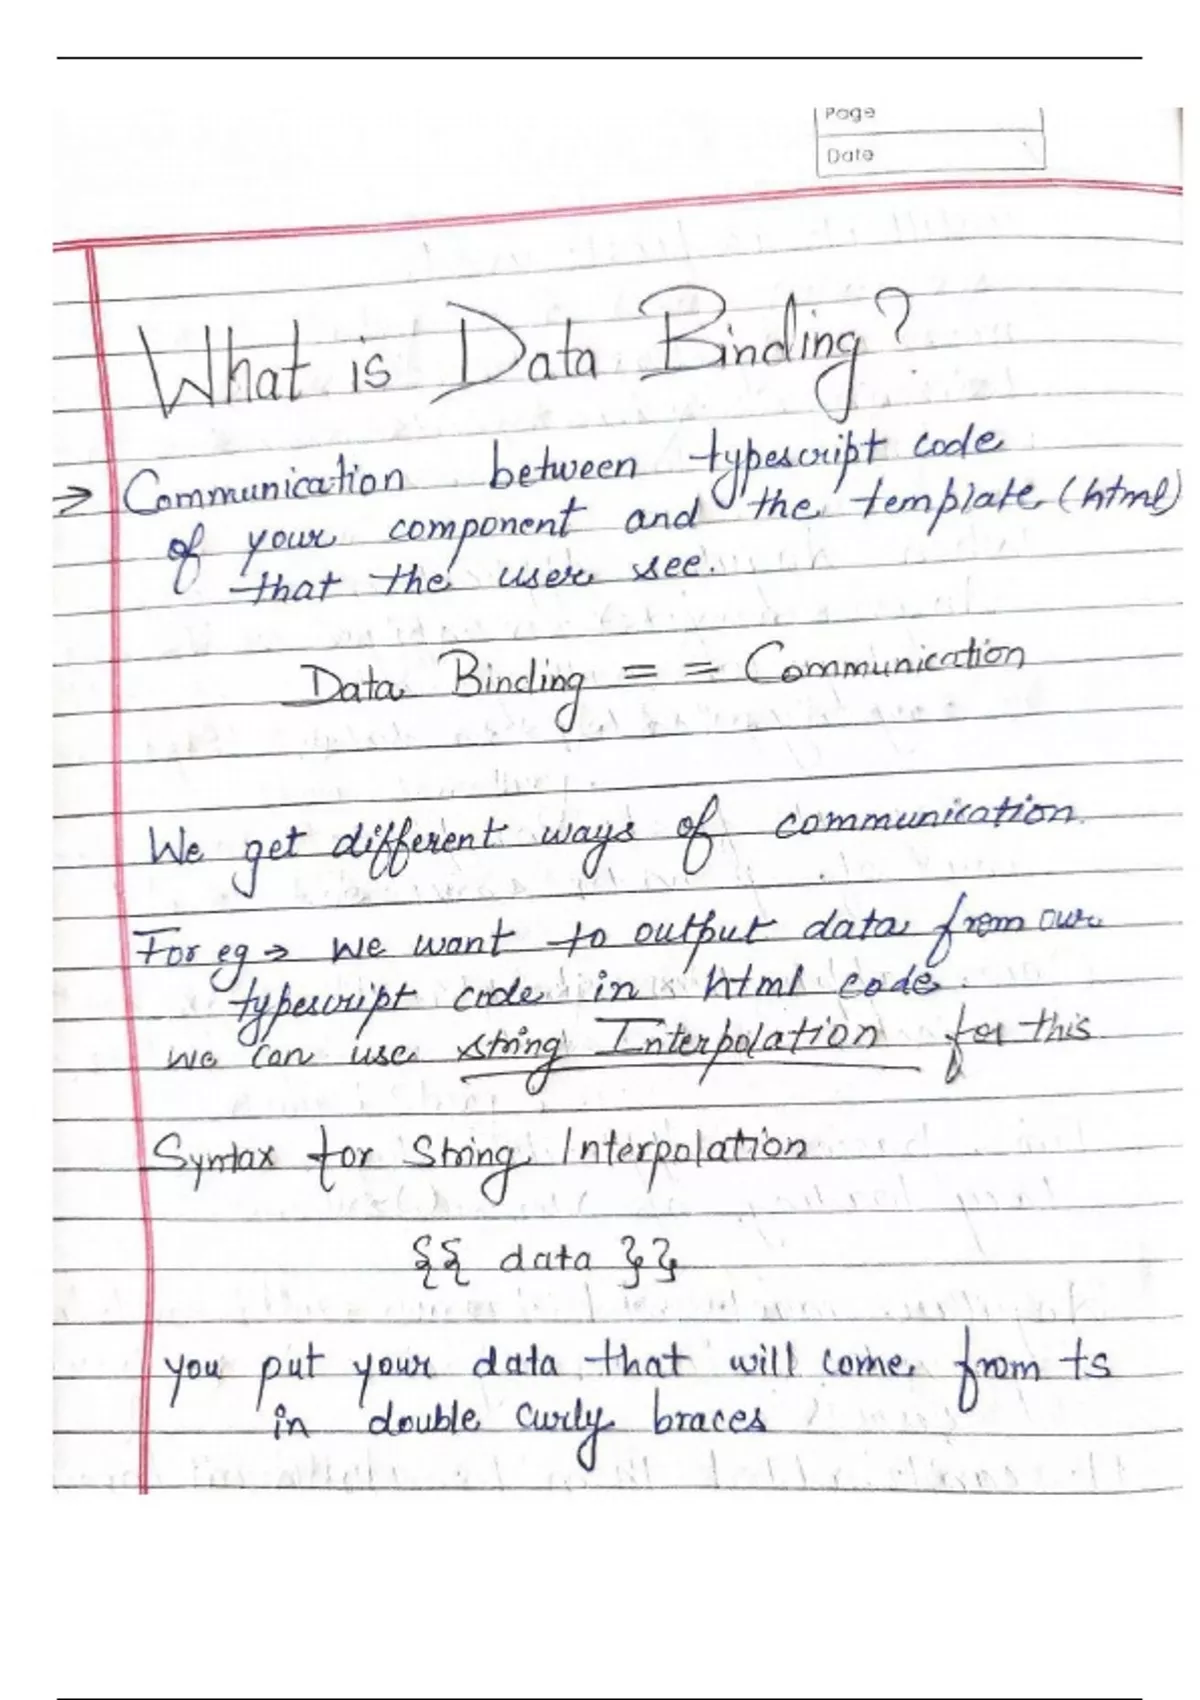 Page
Date
What is Data Binding?
→ Communication between typescript code
of your component and the template (html)
that the user see.
Data Binding == Communication
We get different ways of communication.
For eg → we want to output data from our
typescript code in html code.
we can use string Interpolation for this
Syntax for String Interpolation
{{ data }}
you put your data that will come from ts
in double curly braces